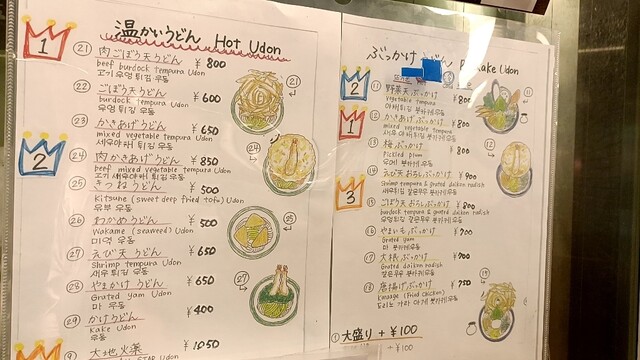 温かいうどん Hot Udon
1
㉑ 肉ごぼう天うどん ¥800
beef burdock tempura Udon
고기 우엉 튀김 우동
㉒ ごぼう天うどん ¥600
burdock tempura Udon
우엉 튀김 우동
㉓ かきあげうどん ¥650
mixed vegetable tempura Udon
새우야채 튀김 우동
2
㉔ 肉かきあげうどん ¥850
beef mixed vegetable tempura Udon
고기 새우야채 튀김 우동
㉕ きつねうどん ¥500
Kitsune (sweet deep fried tofu) Udon
유부 우동
㉖ わかめうどん ¥500
Wakame (seaweed) Udon
미역 우동
㉗ えび天うどん ¥650
Shrimp tempura Udon
새우 튀김 우동
㉘ やまかけうどん ¥650
Grated yam Udon
마 우동
㉙ かけうどん ¥400
Kake Udon
우동
大地火薬 ¥1050
㉑
㉔
㉕
㉗
ぶっかけ Udon
2
⑪ 野菜天ぶっかけ ¥800
vegetable tempura
1
⑫ かきあげぶっかけ ¥800
mixed vegetable tempura
⑬ 梅ぶっかけ ¥800
Pickled plum
⑭ えび天おろしぶっかけ ¥900
Shrimp tempura & grated daikon radish
3
⑮ ごぼう天ぶっかけ ¥800
burdock tempura & grated daikon radish
⑯ やまいもぶっかけ ¥700
Grated yam
마 붓카케우동
⑰ 大根ぶっかけ ¥700
Grated daikon radish
⑱ 唐揚げぶっかけ ¥750
Karaage (Fried chicken)
⑪
⑫
大盛り +¥100
+¥100